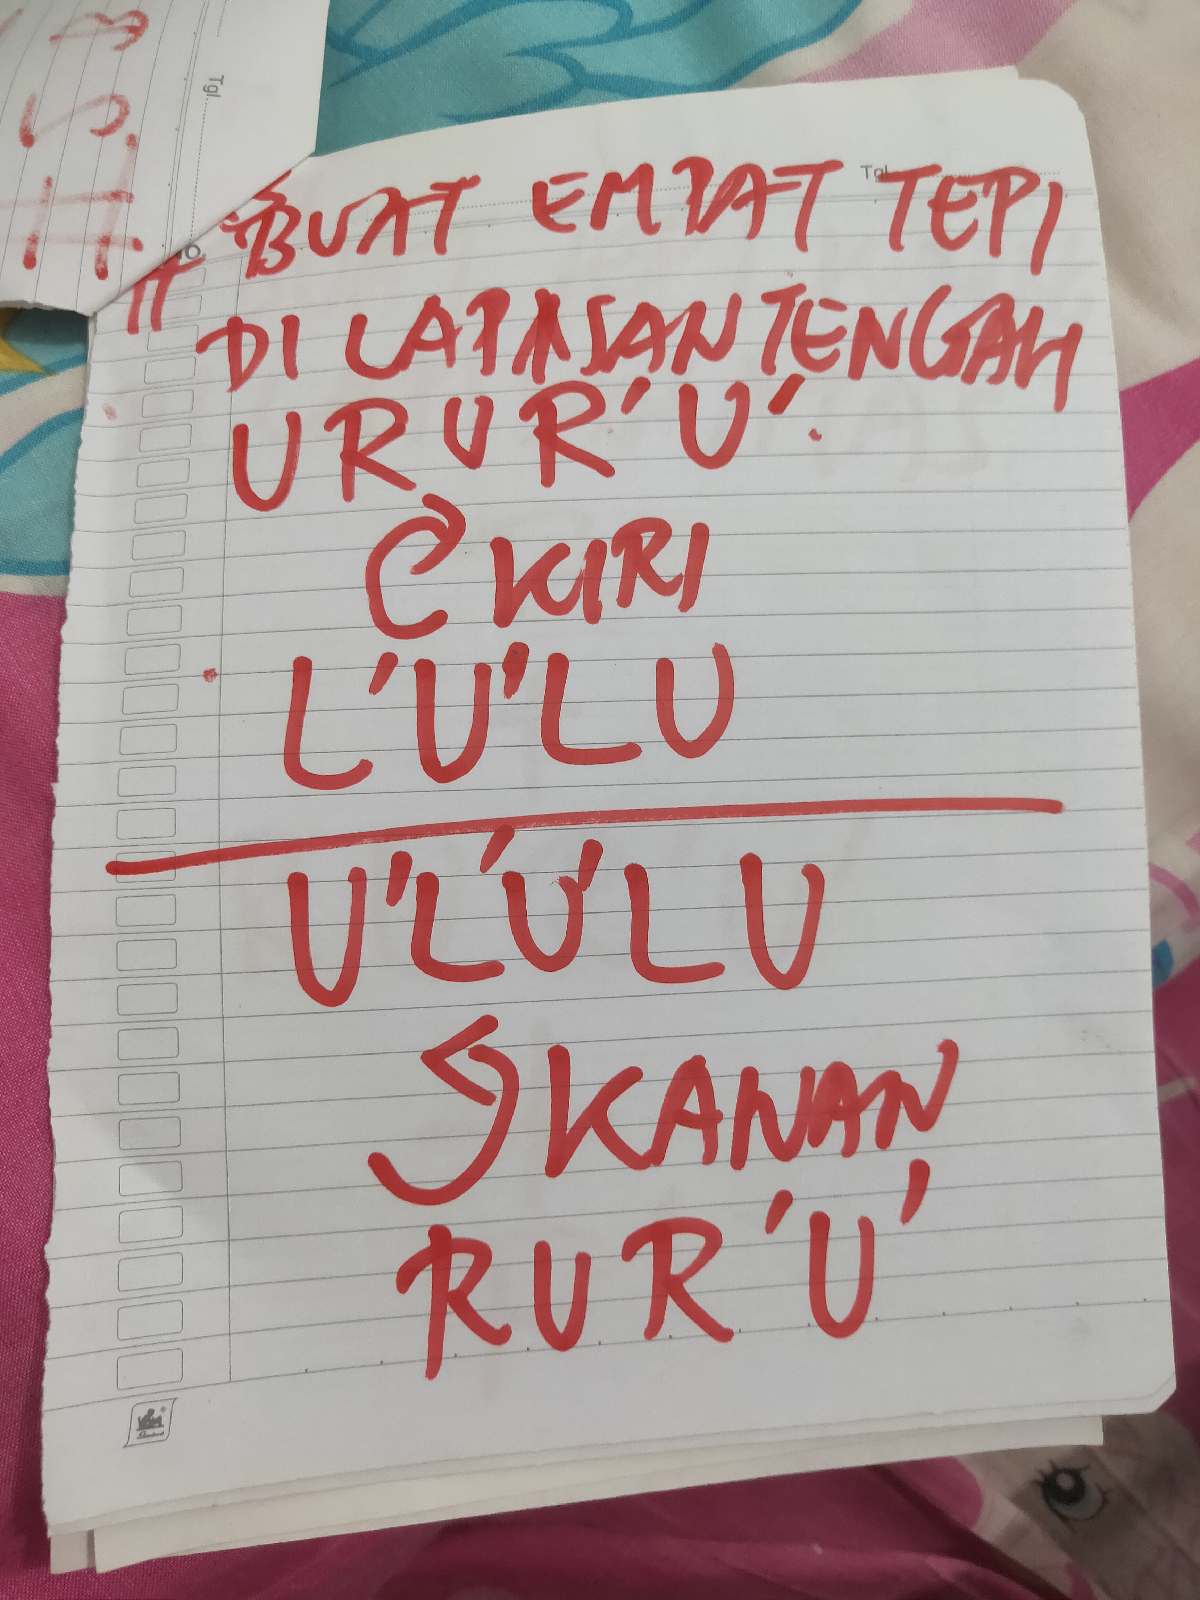 Tgl.
Tgl.
No
# BUAT EMPAT TEPI
DI LAPISAN TENGAH
U R U R' U'.
KIRI
L' U' L U
U' L' U' L U
KANAN
R U R' U'